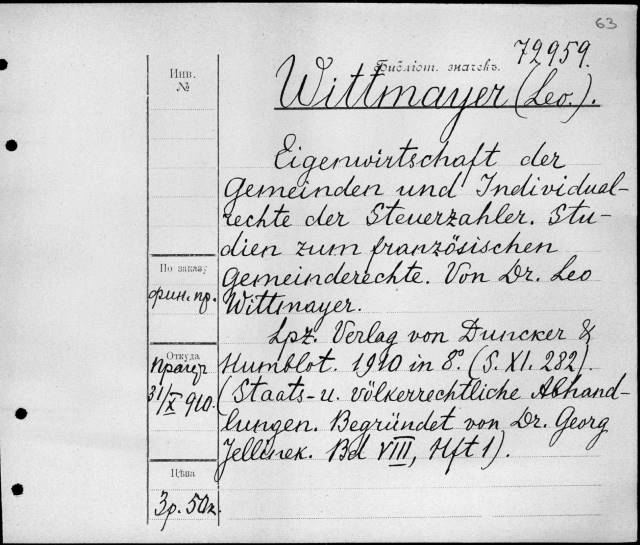 63
72959.
Инв.
№
Библіот. значекъ.
Wittmayer (Leo.).
Eigenwirtschaft der
Gemeinden und Individual-
rechte der Steuerzahler. Stu-
dien zum französischen
Gemeinderechte. Von Dr. Leo
Wittmayer.
Lpz. Verlag von Duncker &
Humblot. 1910 in 8°. (S. XI. 282).
(Staats- u. völkerrechtliche Abhand-
lungen. Begründet von Dr. Georg
Jellinek. Bd VIII, Hft 1).
По заказу
фин. пр.
Откуда
Прагер
31/X 910.
Цѣна
3р. 50к.